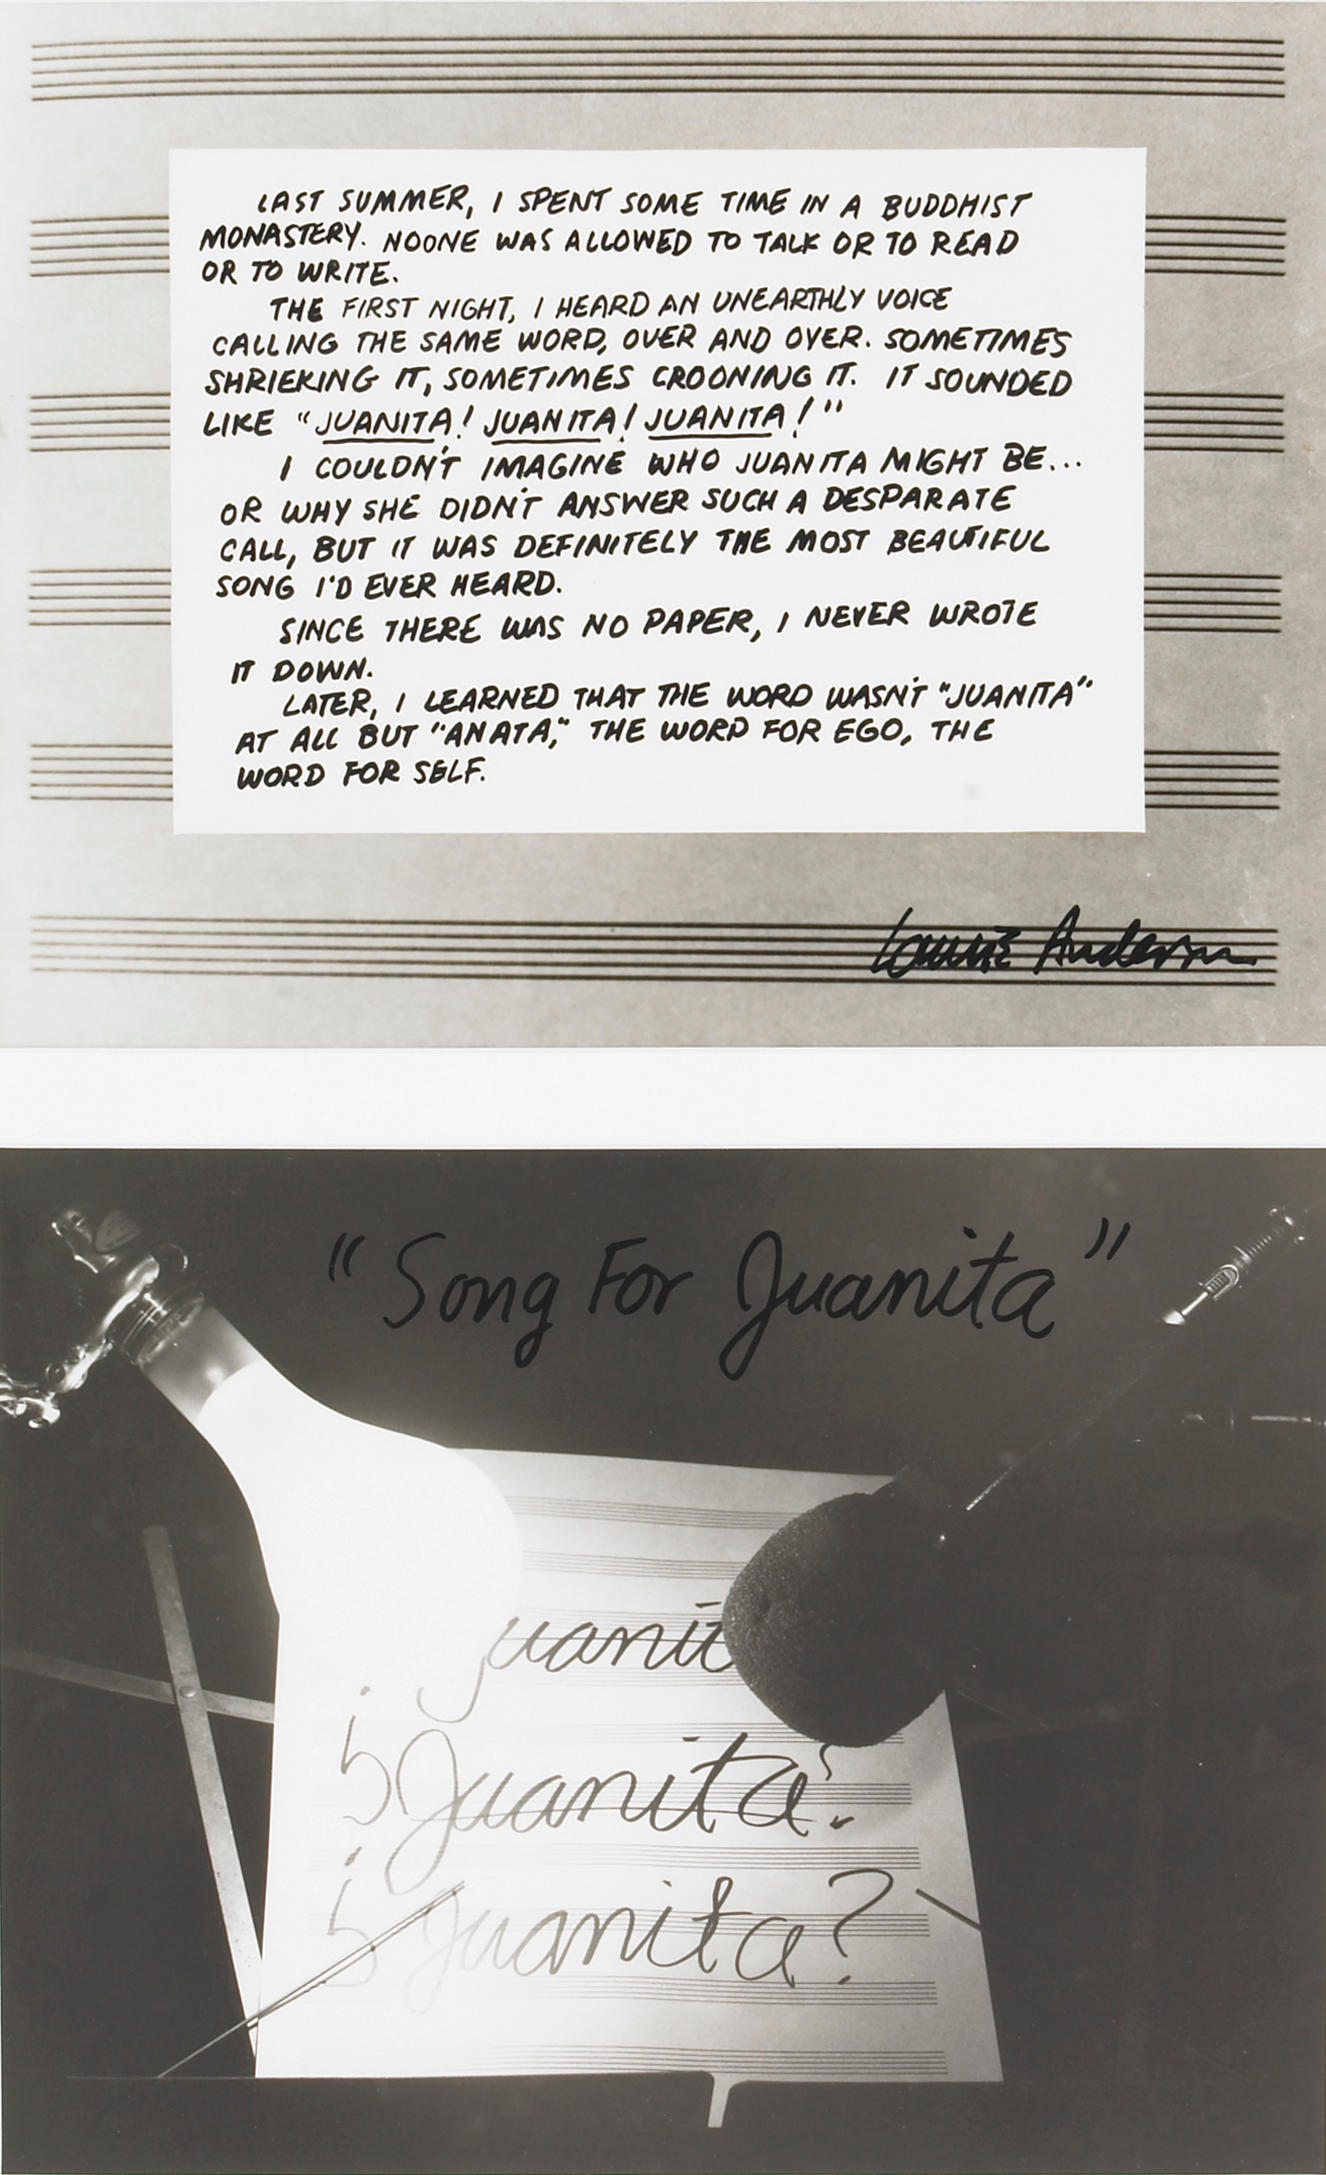 LAST SUMMER, I SPENT SOME TIME IN A BUDDHIST
MONASTERY. NOONE WAS ALLOWED TO TALK OR TO READ
OR TO WRITE.
THE FIRST NIGHT, I HEARD AN UNEARTHLY VOICE
CALLING THE SAME WORD, OVER AND OVER. SOMETIMES
SHRIEKING IT, SOMETIMES CROONING IT. IT SOUNDED
LIKE "JUANITA! JUANITA! JUANITA!"
I COULDN'T IMAGINE WHO JUANITA MIGHT BE...
OR WHY SHE DIDN'T ANSWER SUCH A DESPARATE
CALL, BUT IT WAS DEFINITELY THE MOST BEAUTIFUL
SONG I'D EVER HEARD.
SINCE THERE WAS NO PAPER, I NEVER WROTE
IT DOWN.
LATER, I LEARNED THAT THE WORD WASN'T "JUANITA"
AT ALL BUT "ANATA," THE WORD FOR EGO, THE
WORD FOR SELF.
Laurie Anderson
"Song For Juanita"
Juanit
¿Juanita?
¿Juanita?